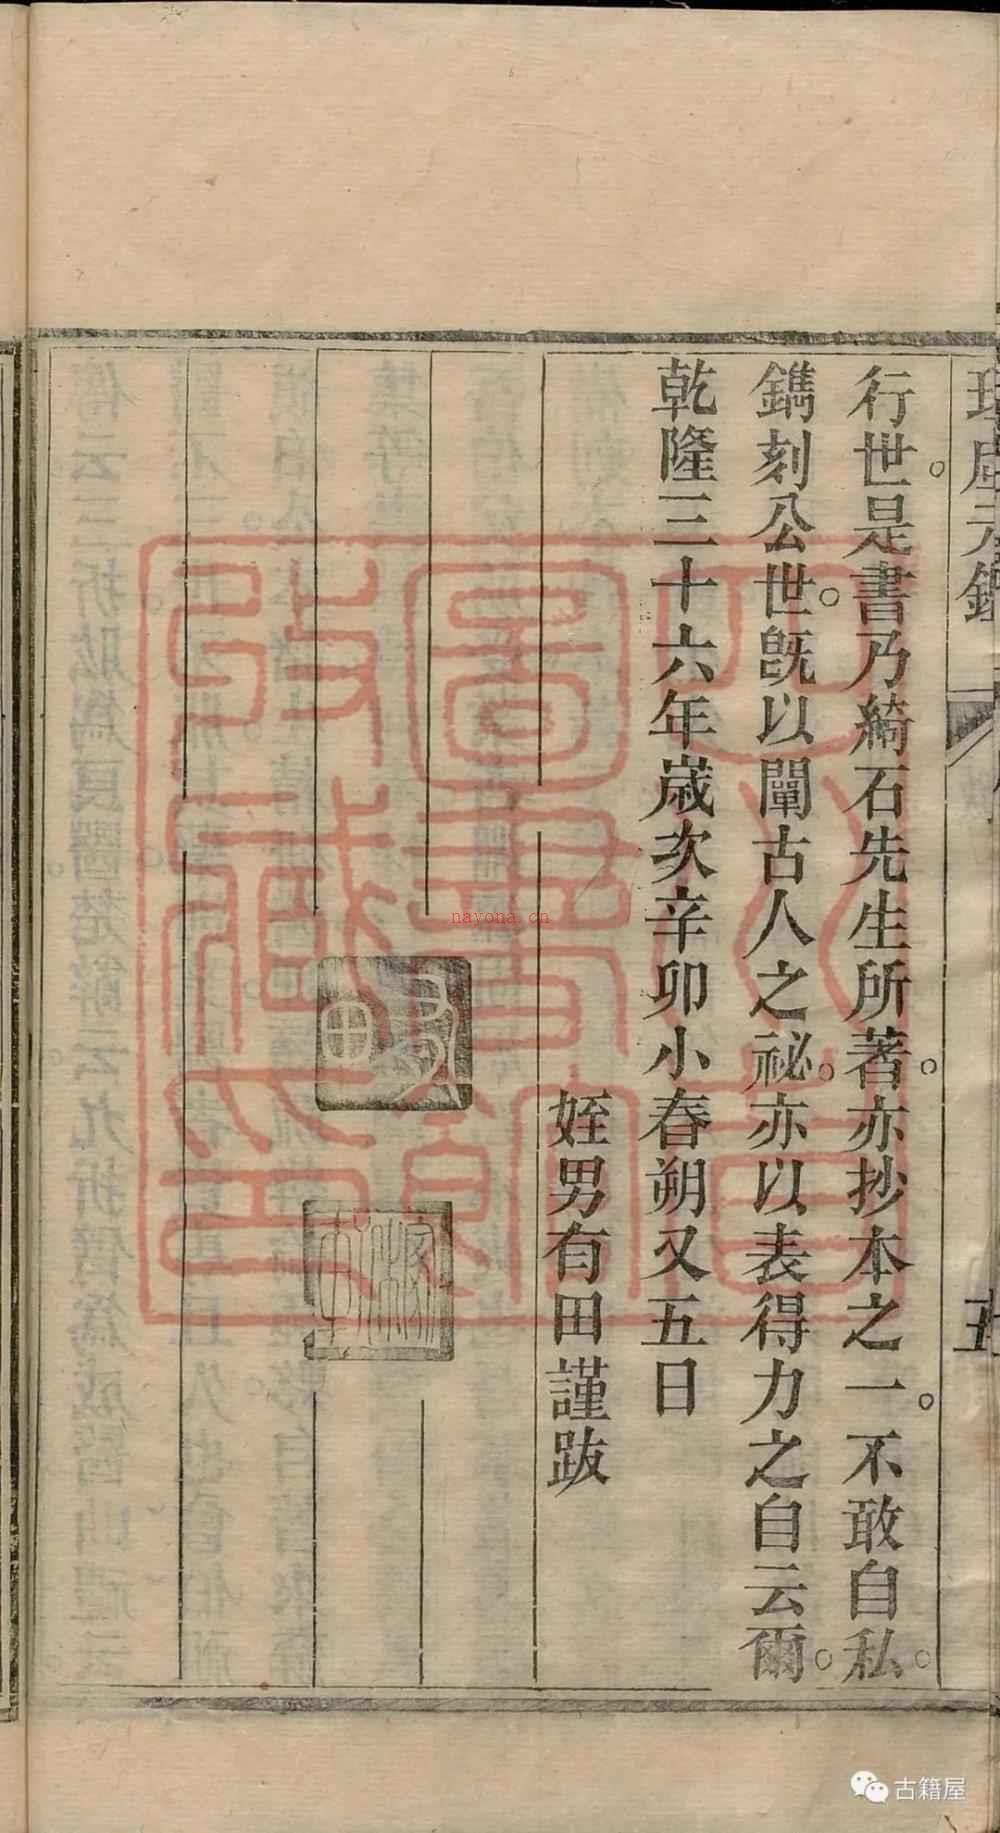 行世。是書乃綺石先生所著。亦抄本之一。不敢自私。
鐫刻公世。旣以闡古人之祕。亦以表得力之自云爾。
乾隆三十六年歲次辛卯小春朔又五日
姪男有田謹跋
nayona.cn
古籍屋